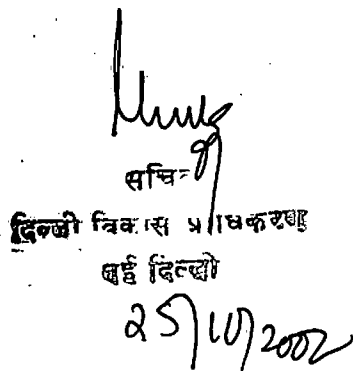 सचिव
दिल्ली विकास प्राधिकरण
नई दिल्ली
25/10/2002